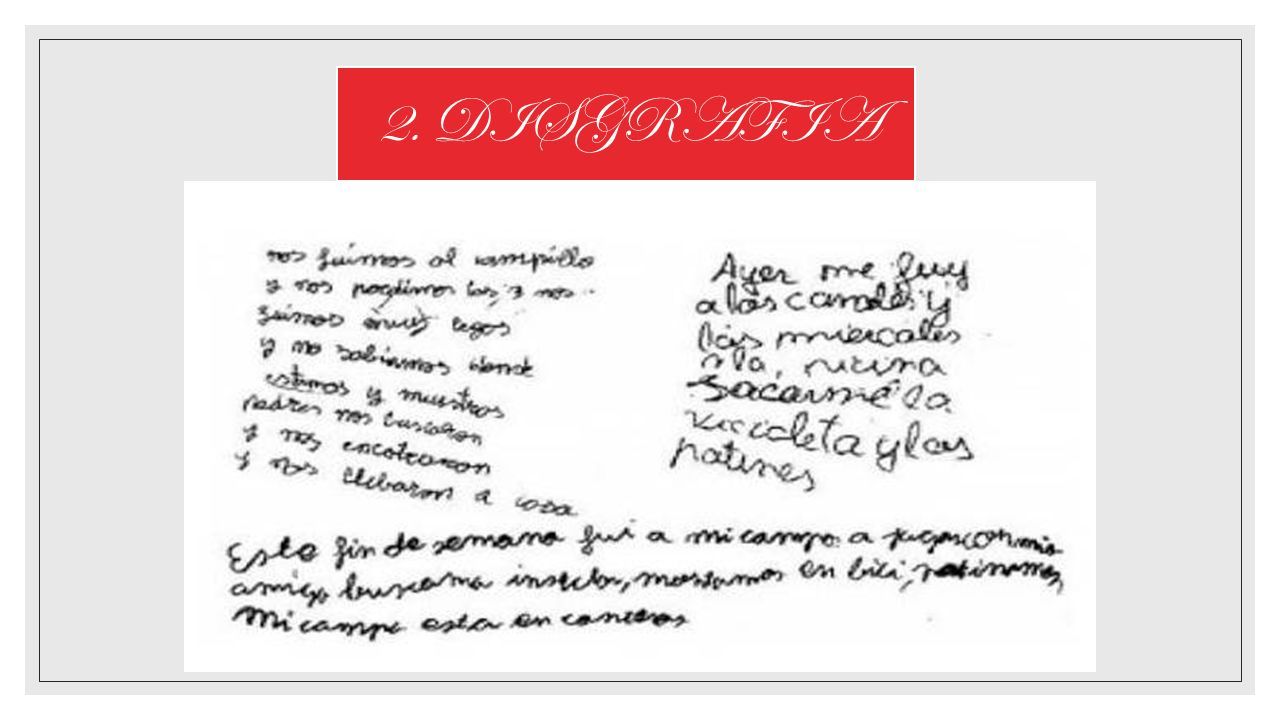 2. DISGRAFIA
nos fuimos al campillo
y nos perdimos los 3 nos
fuimos muy legos
y no sabiamos donde
estamos y nuestros
padres nos buscaron
y nos encotraron
y nos llebaron a casa
Ayer me fuy
a las y
las miercales
a la
sacarme la
vicicleta y los
patines
Este fin de semana fui a mi campo a jugar con mis
amigo buscama insecto, montamos en bici, patinamos,
Mi campo esta en